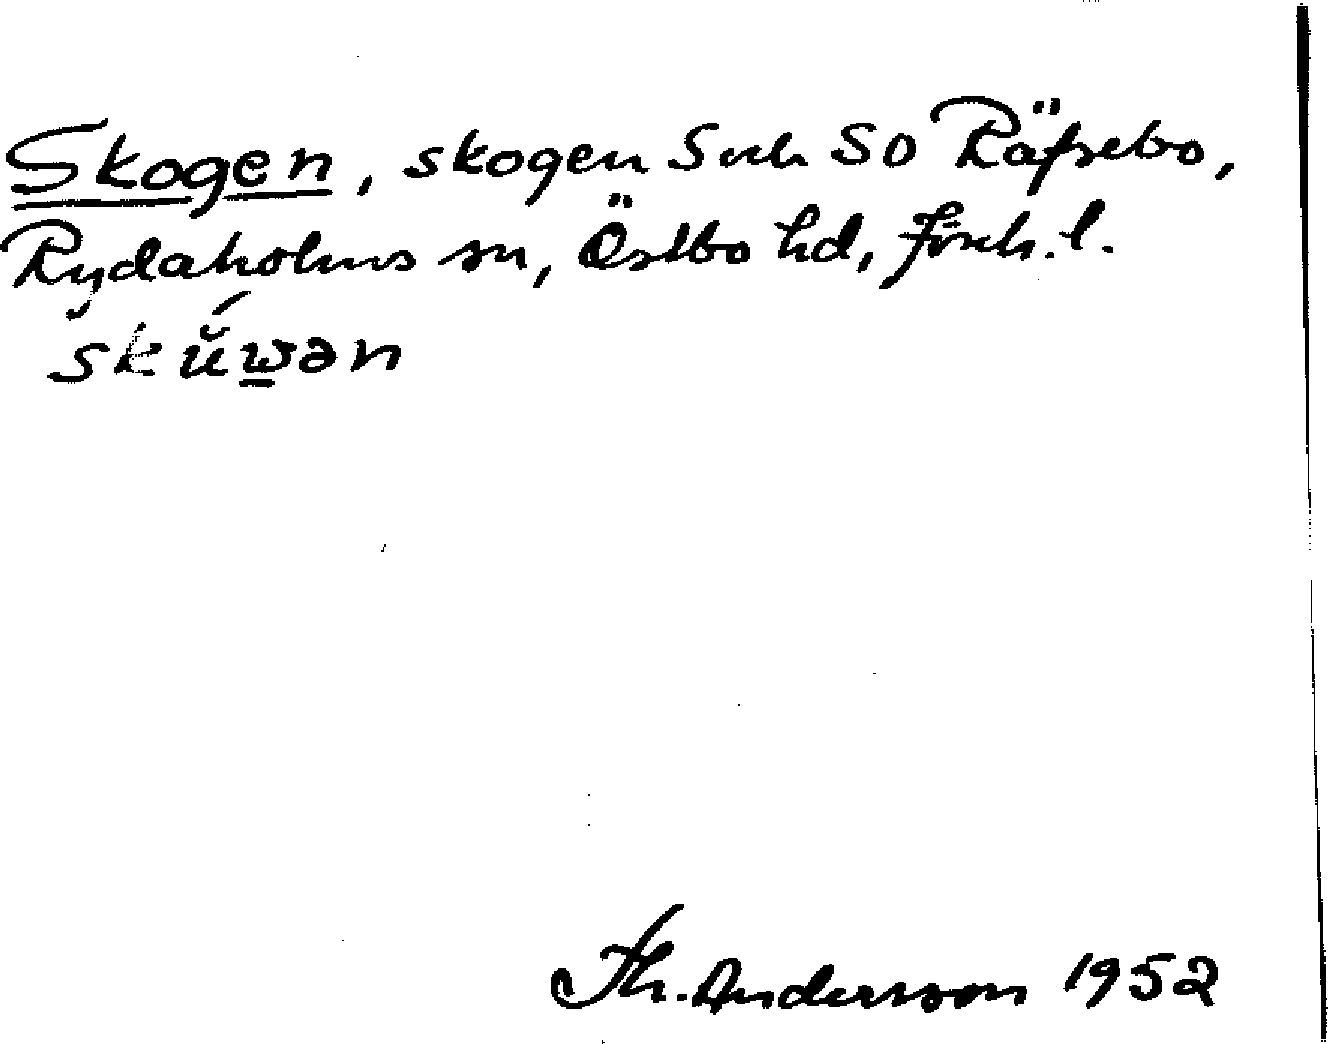 Skogen, skogen S och SO Räfsebo,
Rydaholms sn, Östbo hd, Jönk. l.
skŭ́w̲ən
Th. Andersson 1952